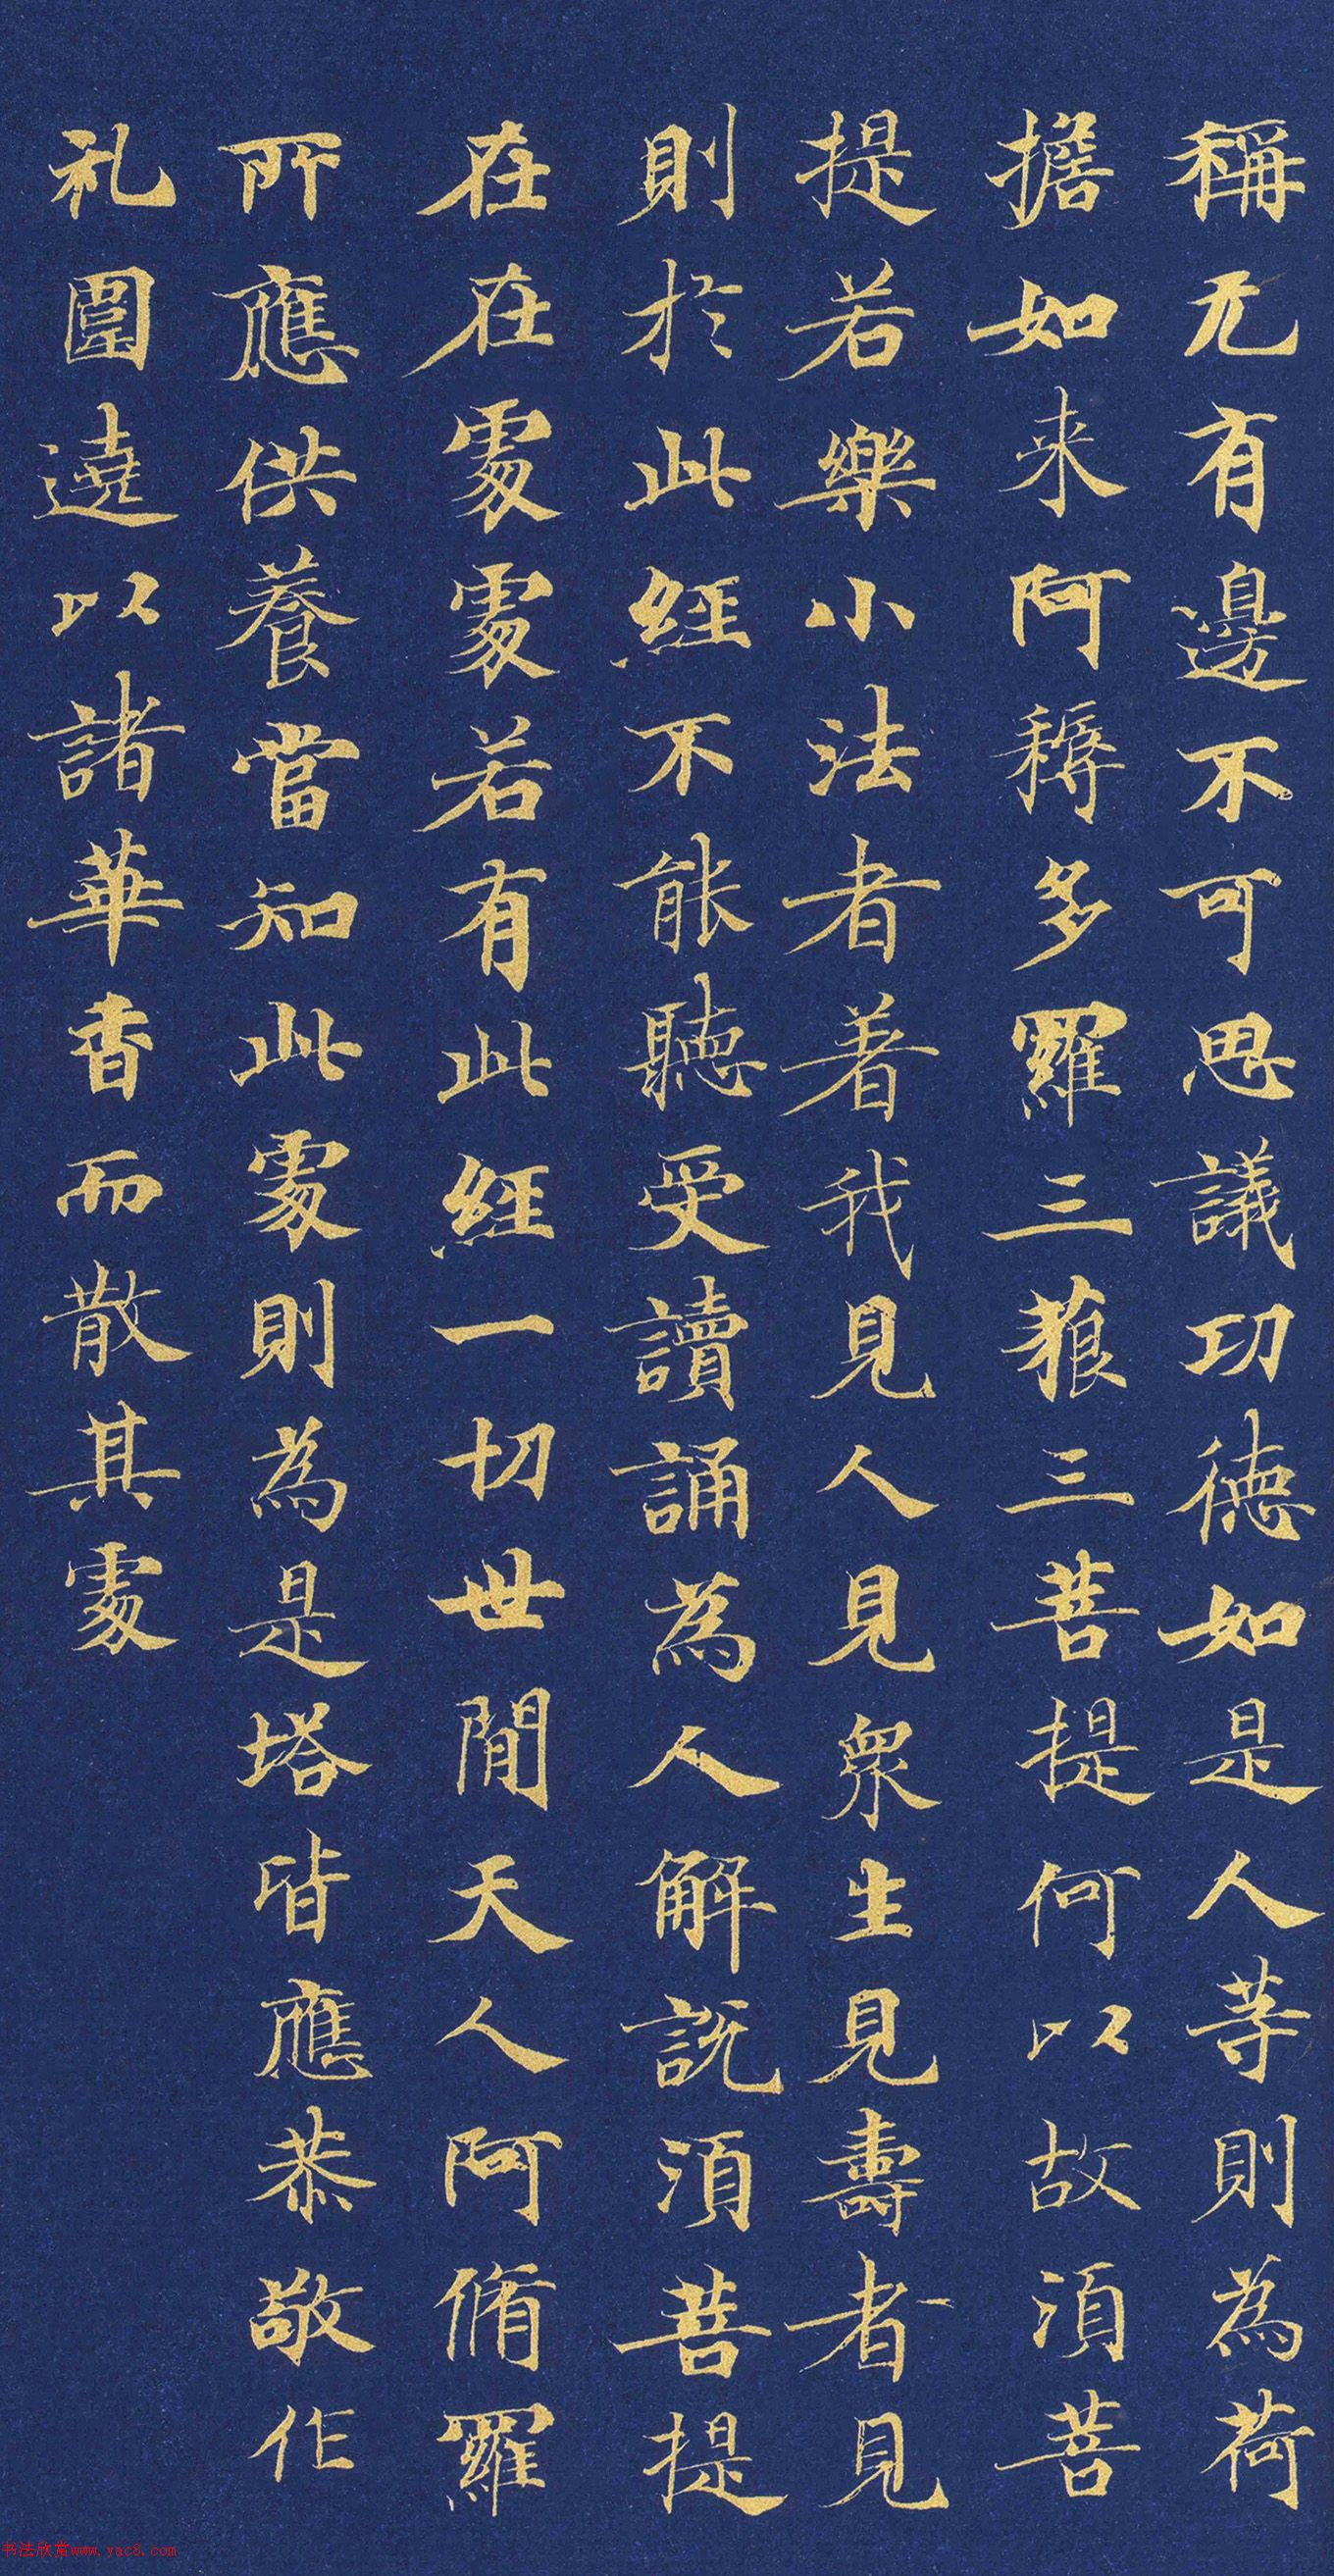 稱无有邊不可思議功德如是人等則為荷
擔如来阿耨多羅三藐三菩提何以故須菩
提若樂小法者著我見人見眾生見壽者見
則於此經不能聽受讀誦為人解說須菩提
在在處處若有此經一切世閒天人阿脩羅
所應供養當知此處則為是塔皆應恭敬作
礼圍遶以諸華香而散其處
书法欣赏www.yac8.com